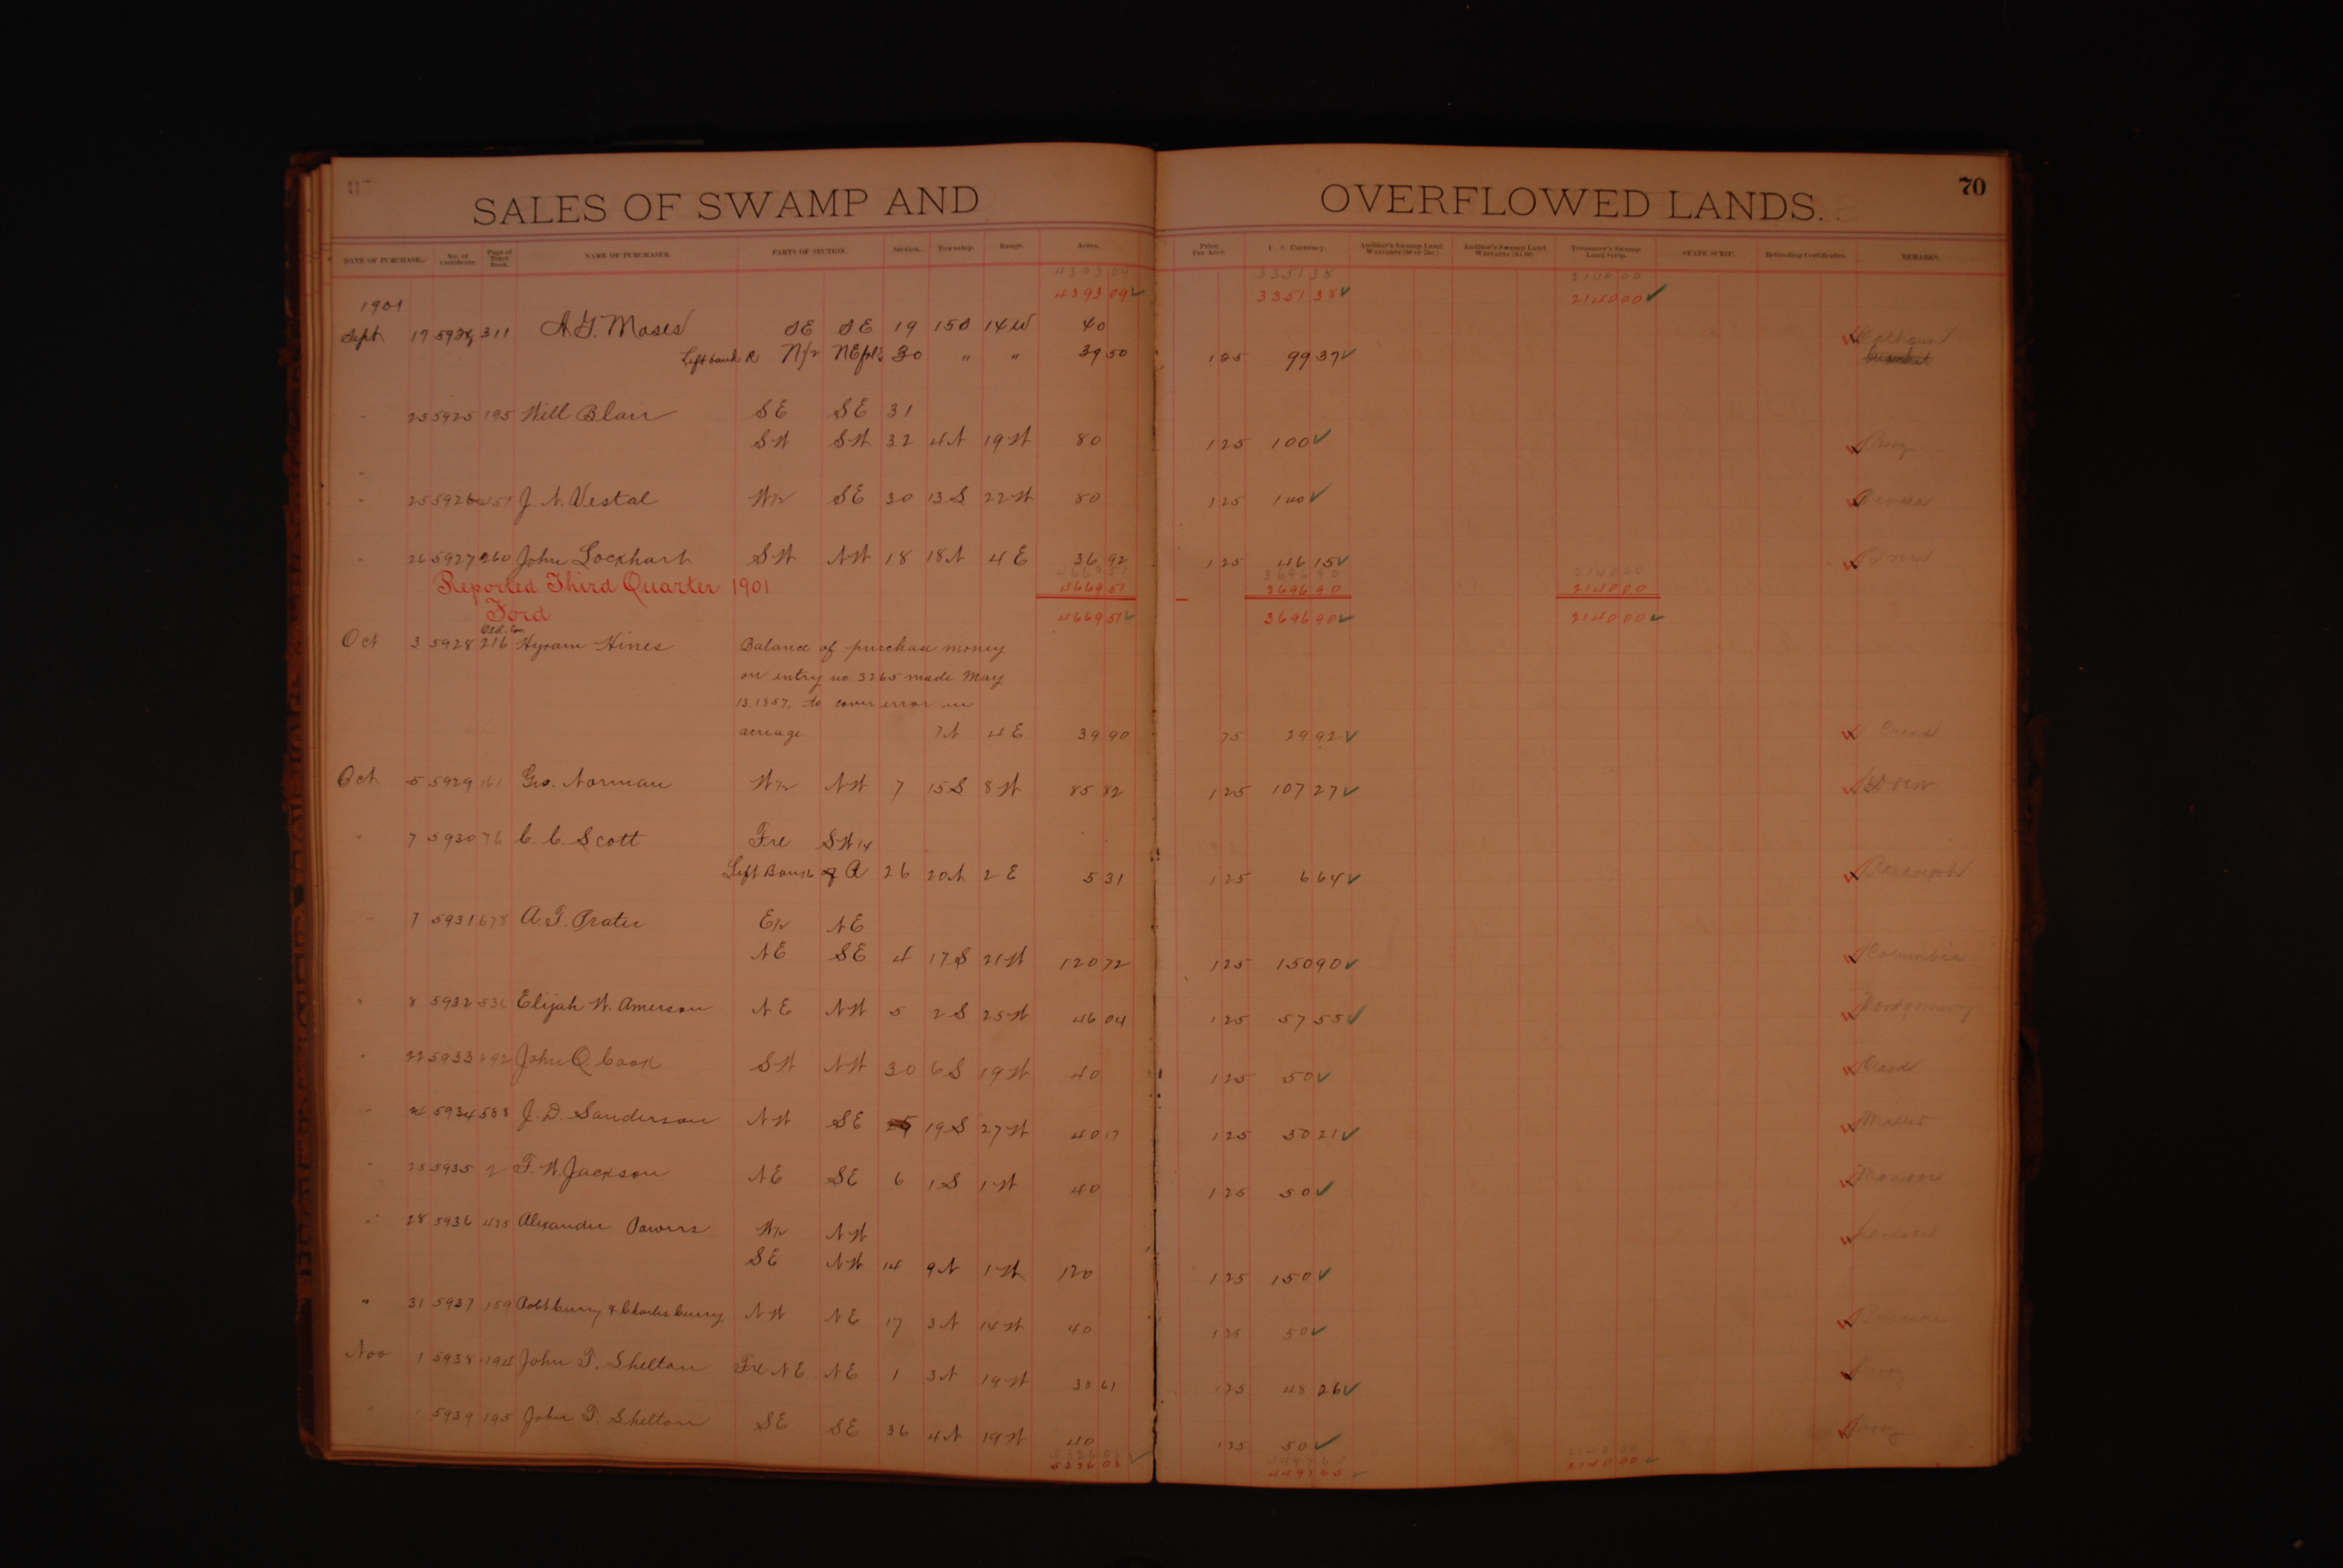 SALES OF SWAMP AND OVERFLOWED LANDS. 70
DATE OF PURCHASE. No. of Certificate. Page of Tract Book. NAME OF PURCHASER. PARTS OF SECTION. Section. Township. Range. Acres. Price Per Acre. U. S. Currency. Auditor's Swamp Land Warrants (50 or 75c.) Auditor's Swamp Land Warrants ($1.00) Treasurer's Swamp Land Scrip. STATE SCRIP. Refunding Certificates. REMARKS.
4393 09 3351 38 2140 00
1901 4393 09 3351 38 2140 00
Sept 17 5924 311 A. G. Moses SE SE 19 15S 14W 40 Calhoun
Left bank R N/2 NE frl 30 " " 39 50 1 25 99 37
" 25 5925 195 Will Blair SE SE 31
SW SW 32 4N 19W 80 1 25 100 Perry
" 25 5926 451 J. N. Vestal W/2 SE 30 13S 22W 80 1 25 100 Nevada
" 26 5927 260 John Lockhart SW NW 18 18N 4E 36 92 1 25 46 15 Green
4669 51 3696 90 2140 00
Reported Third Quarter 1901 4669 51 3696 90 2140 00
Ford 4669 51 3696 90 2140 00
Oct 3 5928 216 Hyram Hines Balance of purchase money
on entry no. 3265 made May
13.1857, to cover error in
acreage 7N 4E 39 90 75 29 92 Cross
Oct 5 5929 161 Geo. Norman W/2 NW 7 15S 8W 85 82 1 25 107 27 Drew
" 7 5930 76 C. C. Scott Frl SW 1/4
Left Bank of R 26 20N 2E 5 31 1 25 6 64 Randolph
" 7 5931 678 A. G. Prater E/2 NE
NE SE 4 17S 21W 120 72 1 25 150 90 Columbia
" 8 5932 531 Elijah W. Amerson NE NW 5 2S 25W 46 04 1 25 57 55 Montgomery
" 22 5933 692 John Q. Cook SW NW 30 6S 19W 40 1 25 50 Clark
" 24 5934 588 J. D. Sanderson NW SE 19S 27W 40 17 1 25 50 21 Miller
" 25 5935 2 T. W. Jackson NE SE 6 1S 1W 40 1 25 50 Monroe
" 28 5936 425 Alexander Powers W/2 NW
SE NW 14 9N 1W 120 1 25 150 Jackson
" 31 5937 159 Robt Curry & Charles Curry NW NE 17 3N 14W 40 1 25 50
Nov 1 5938 194 John T. Shelton Frl NE NE 1 3N 19W 38 61 1 25 48 26 Perry
" " 5939 195 John T. Shelton SE SE 36 4N 19W 40 1 25 50 Perry
5326 08 4497 65 2140 00
5326 08 4497 65 2140 00